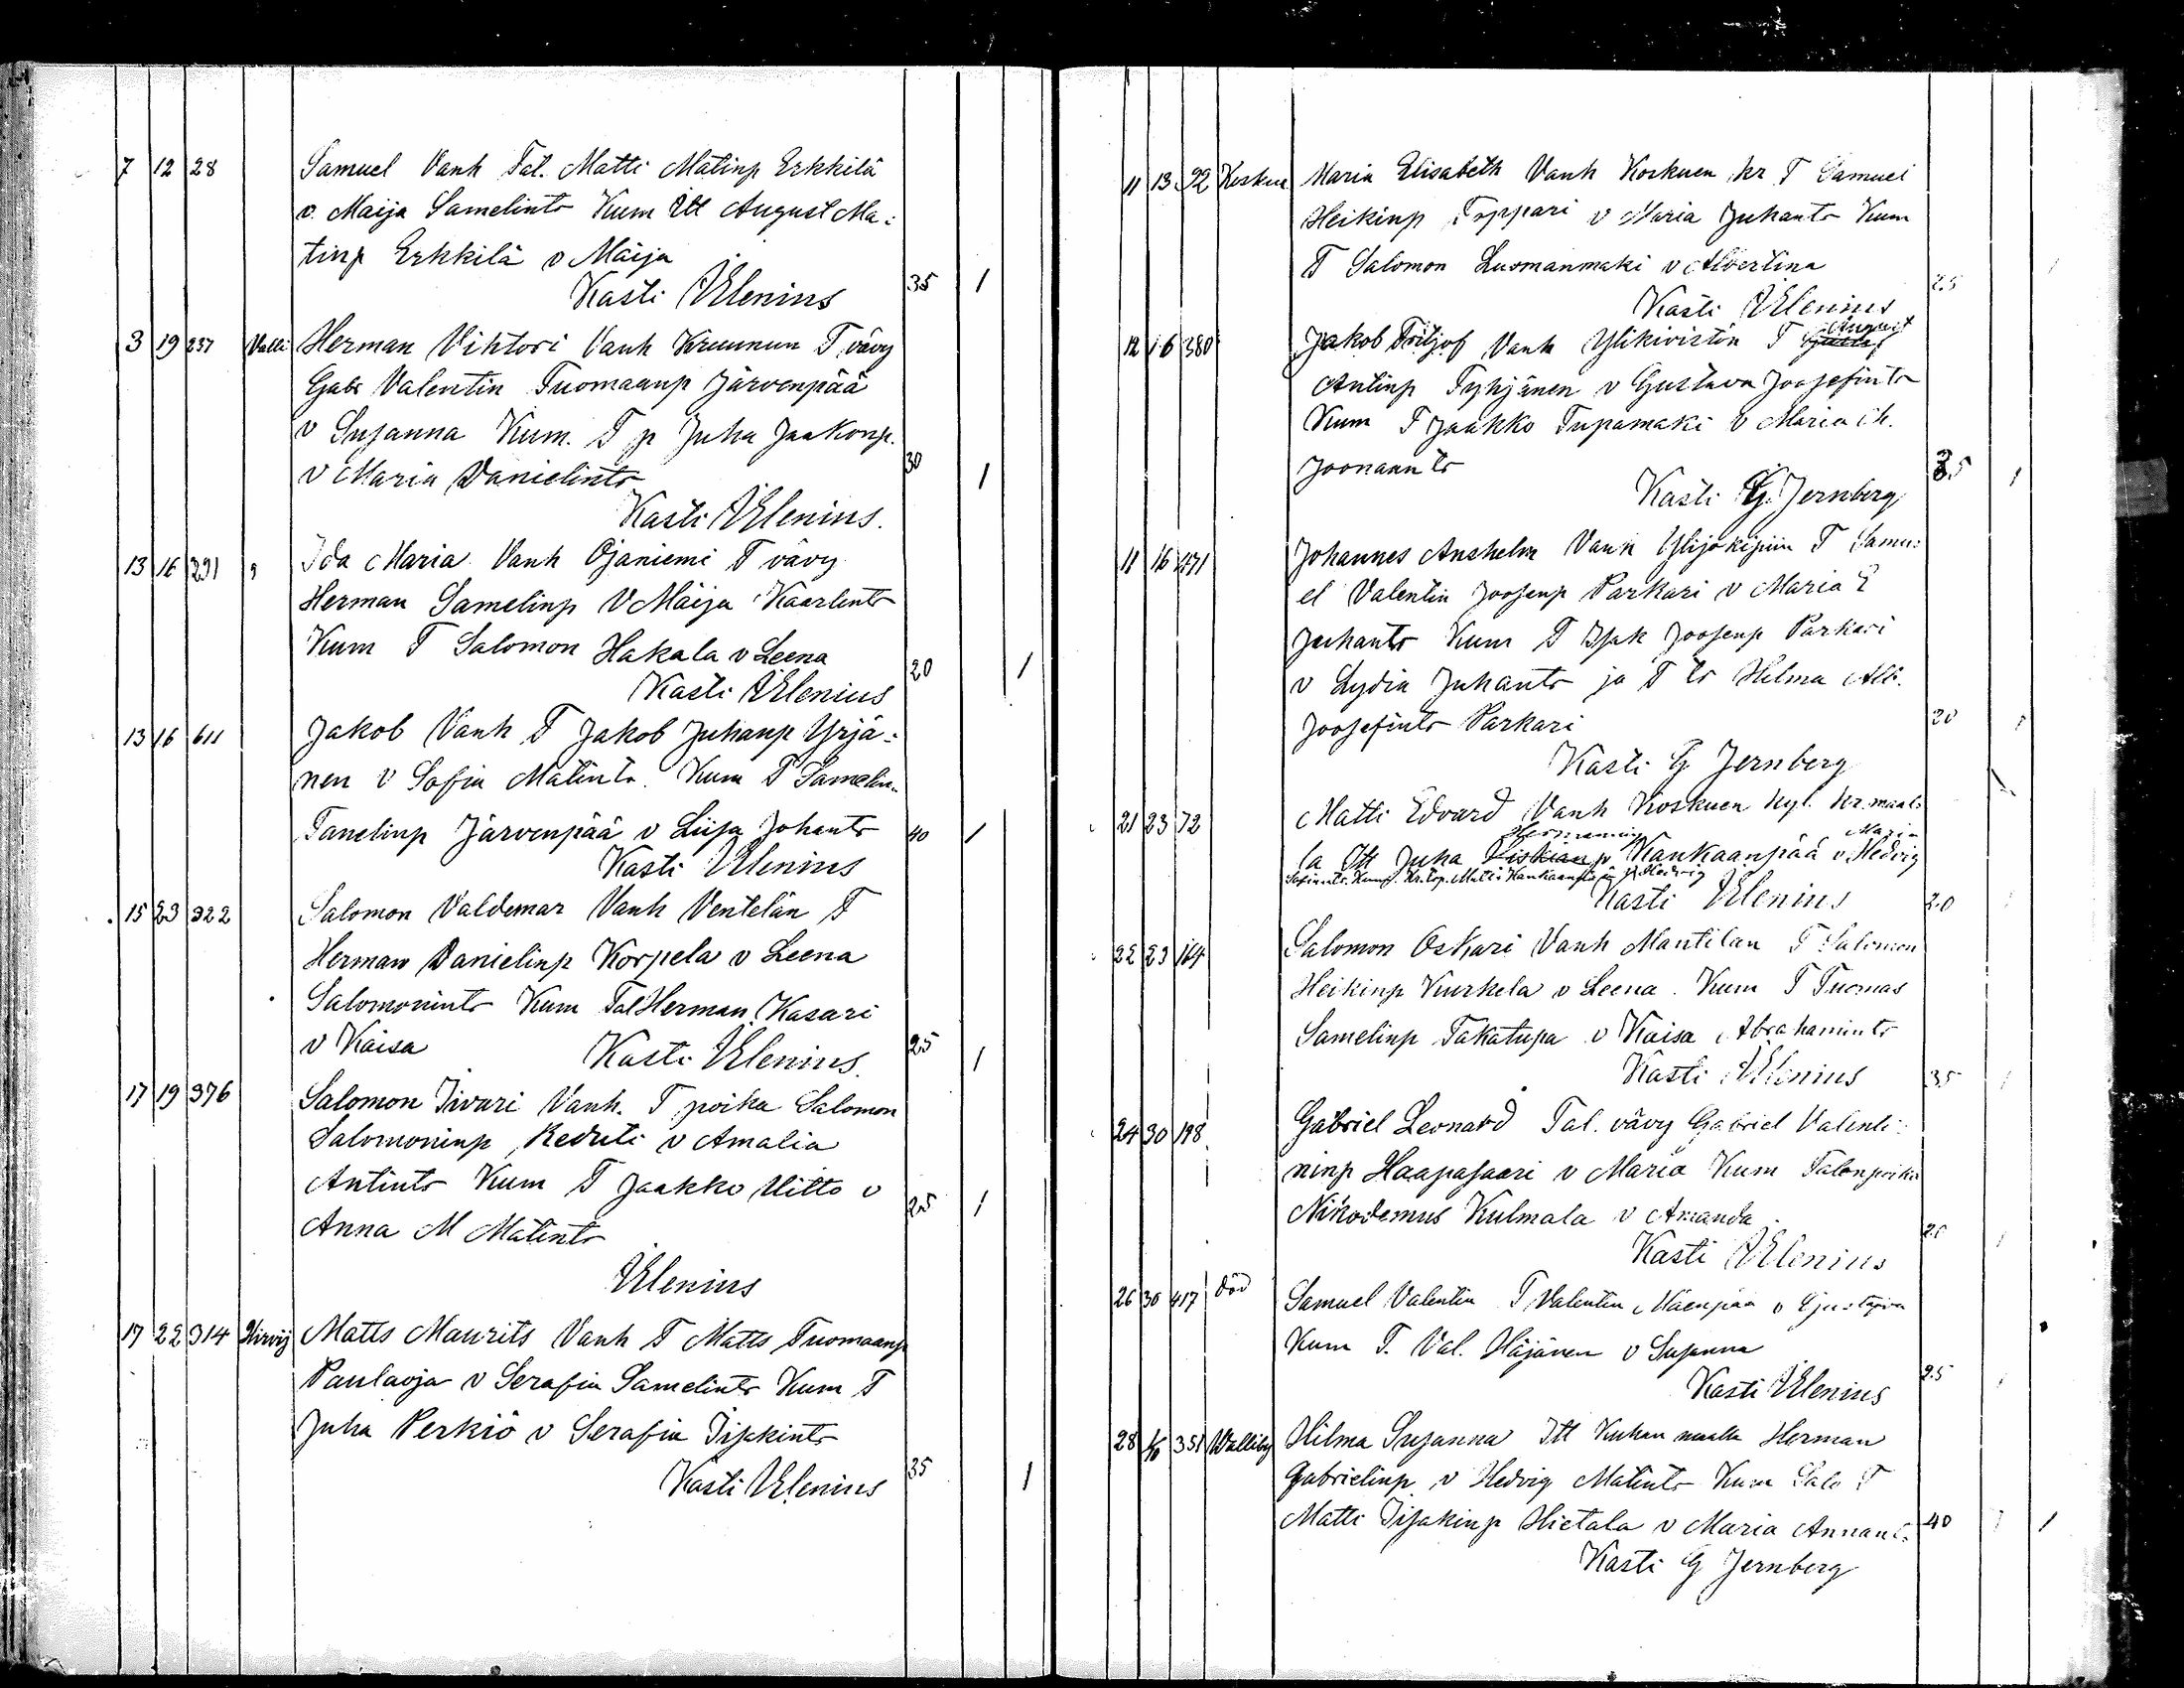 7 12 28 Samuel Vanh Tal. Matti Matinp Erkkilä
v. Maija Samelintr Kum Itt August Ma:
tinp Erkkilä v Maija
Kasti Elenius 35 1
3 19 237 Valli Herman Vihtori Vanh Kruunun T vävy
Gabr Valentin Tuomaanp Järvenpää
v Susanna Kum. T p Juha Jaakonp.
v Maria Danielintr 30 1
Kasti Elenius.
13 16 291 Ida Maria Vanh Ojaniemi T vävy
Herman Samelinp v Maija Kaarlentr
Kum T Salomon Hakala v Leena 20 1
Kasti Elenius
13 16 611 Jakob Vanh T Jakob Juhanp Yrjä-
nen v Sofia Matintr. Kum T Samelin
Tanelinp Järvenpää v Liisa Johantr 40 1
Kasti Elenius
15 23 322 Salomon Valdemar Vanh Ventelän T
Herman Danielinp Korpela v Leena
Salomonintr Kum Tal Herman Kasari
v Kaisa Kasti Elenius. 25 1
17 19 376 Salomon Iivari Vanh. T poika Salomon
Salomoninp Keduti v Amalia
Antintr Kum T Jaakko Uitto v 25 1
Anna M Matintr
Elenius
17 22 314 Hirvij Matts Maurits Vanh T Matts Tuomaanp
Paulaoja v Serafia Samelintr Kum T
Juha Perkiö v Serafia Iisakintr
Kasti Elenius 35 1
11 13 92 Koskue Maria Elisabeth Vanh Koskuen kr T Samuel
Heikinp Toppari v Maria Juhantr Kum
T Salomon Luomanmaki v Albertina 25
Kasti Elenius
12 16 380 Jakob Fritjof Vanh Ylikiviston T August
Antinp Tyhjänen v Gustava Joosefintr
Kum T Jaakko Tupamaki v Maria M.
Joonaantr 35 1
Kasti G. Jernberg
11 16 471 Johannes Anshelm Vanh Ylijokipiin T Samu:
el Valentin Joosenp Parkari v Maria E
Juhantr Kum T Isak Joosenp Parkari
v Lydia Juhantr ja T tr Hilma Alb.
Joosefintr Parkari 20 1
Kasti G Jernberg
21 23 72 Matti Edvard Vanh Koskuen kyl. kr. maal:
Hermanninp Maria
la Itt Juha Kankaanpää v Hedvig
Kum. Kr. tp. Matti Kankaanpää ja Hedvig
Kasti Elenius 20
22 23 164 Salomon Oskari Vanh Mantilan T Salomon
Heikinp Kurkela v Leena. Kum T Tuomas
Samelinp Takatupa v Kaisa Abrahamintr
Kasti Elenius 35
24 30 198 Gabriel Leonard Tal. vävy Gabriel Valenti:
ninp Haapasaari v Maria Kum Talonpoika
Nikodemus Kulmala v Amanda
Kasti Elenius
26 30 417 död Samuel Valentin T Valentin Mäenpää v Gustava
Kum T. Val. Häjänen v Susanna
Kasti Elenius 25
28 351 Walliby Hilma Susanna Itt Kuhan maalla Herman
Gabrielinp v Hedvig Matintr Kum Salo T
Matti Iisakinp Hietala v Maria Annant. 40 1
Kasti G Jernberg